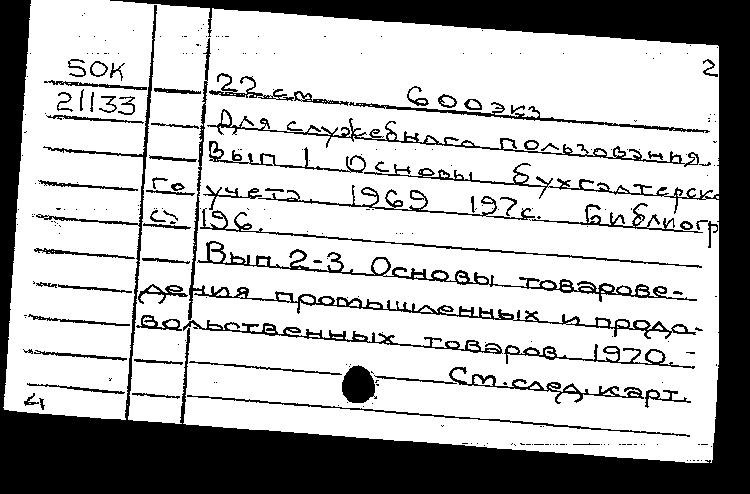 2
SOK
21133
22 см 600 экз.
Для служебного пользования.
Вып 1. Основы бухгалтерско
го учета. 1969 197с. Библиогр
с. 196.
Вып. 2-3. Основы товарове-
дения промышленных и продо-
вольственных товаров. 1970. -
См. след. карт.
4